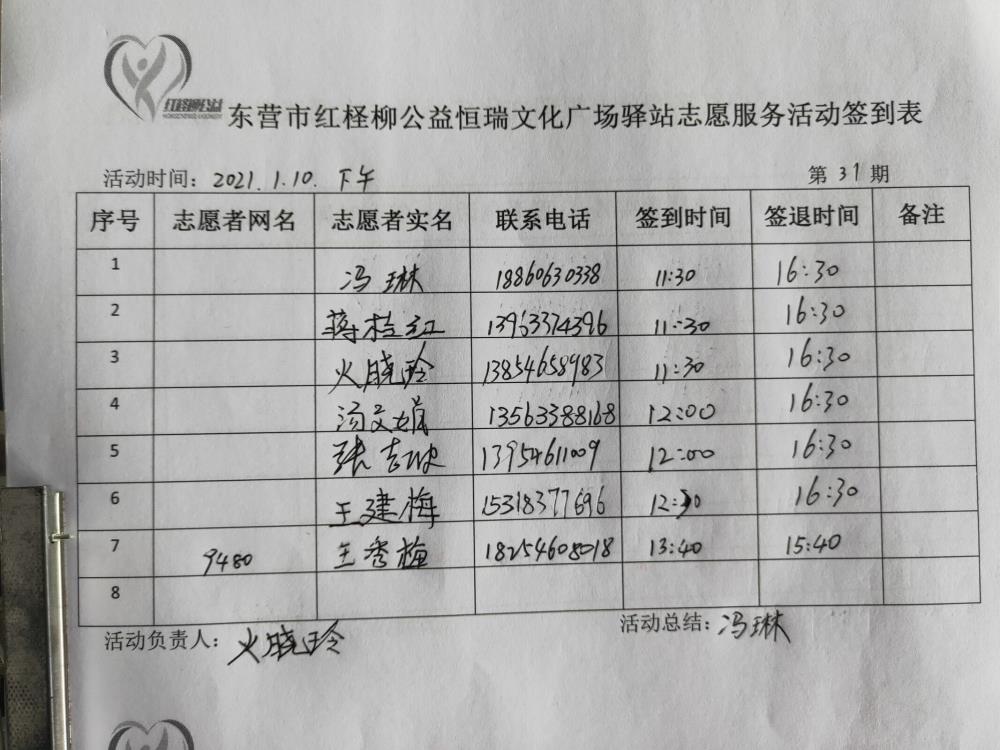 红柽柳公益
东营市红柽柳公益恒瑞文化广场驿站志愿服务活动签到表
活动时间：2021.1.10. 下午 第 31 期
序号 志愿者网名 志愿者实名 联系电话 签到时间 签退时间 备注
1 冯琳 18860630338 11:30 16:30
2 蒋桂红 13963374396 11:30 16:30
3 火晓玲 13854658983 11:30 16:30
4 汤文娟 13563388168 12:00 16:30
5 张志 13954611009 12:00 16:30
6 王建梅 15318377696 12:30 16:30
7 9480 王秀梅 18254608018 13:40 15:40
8
活动负责人：火晓玲 活动总结：冯琳